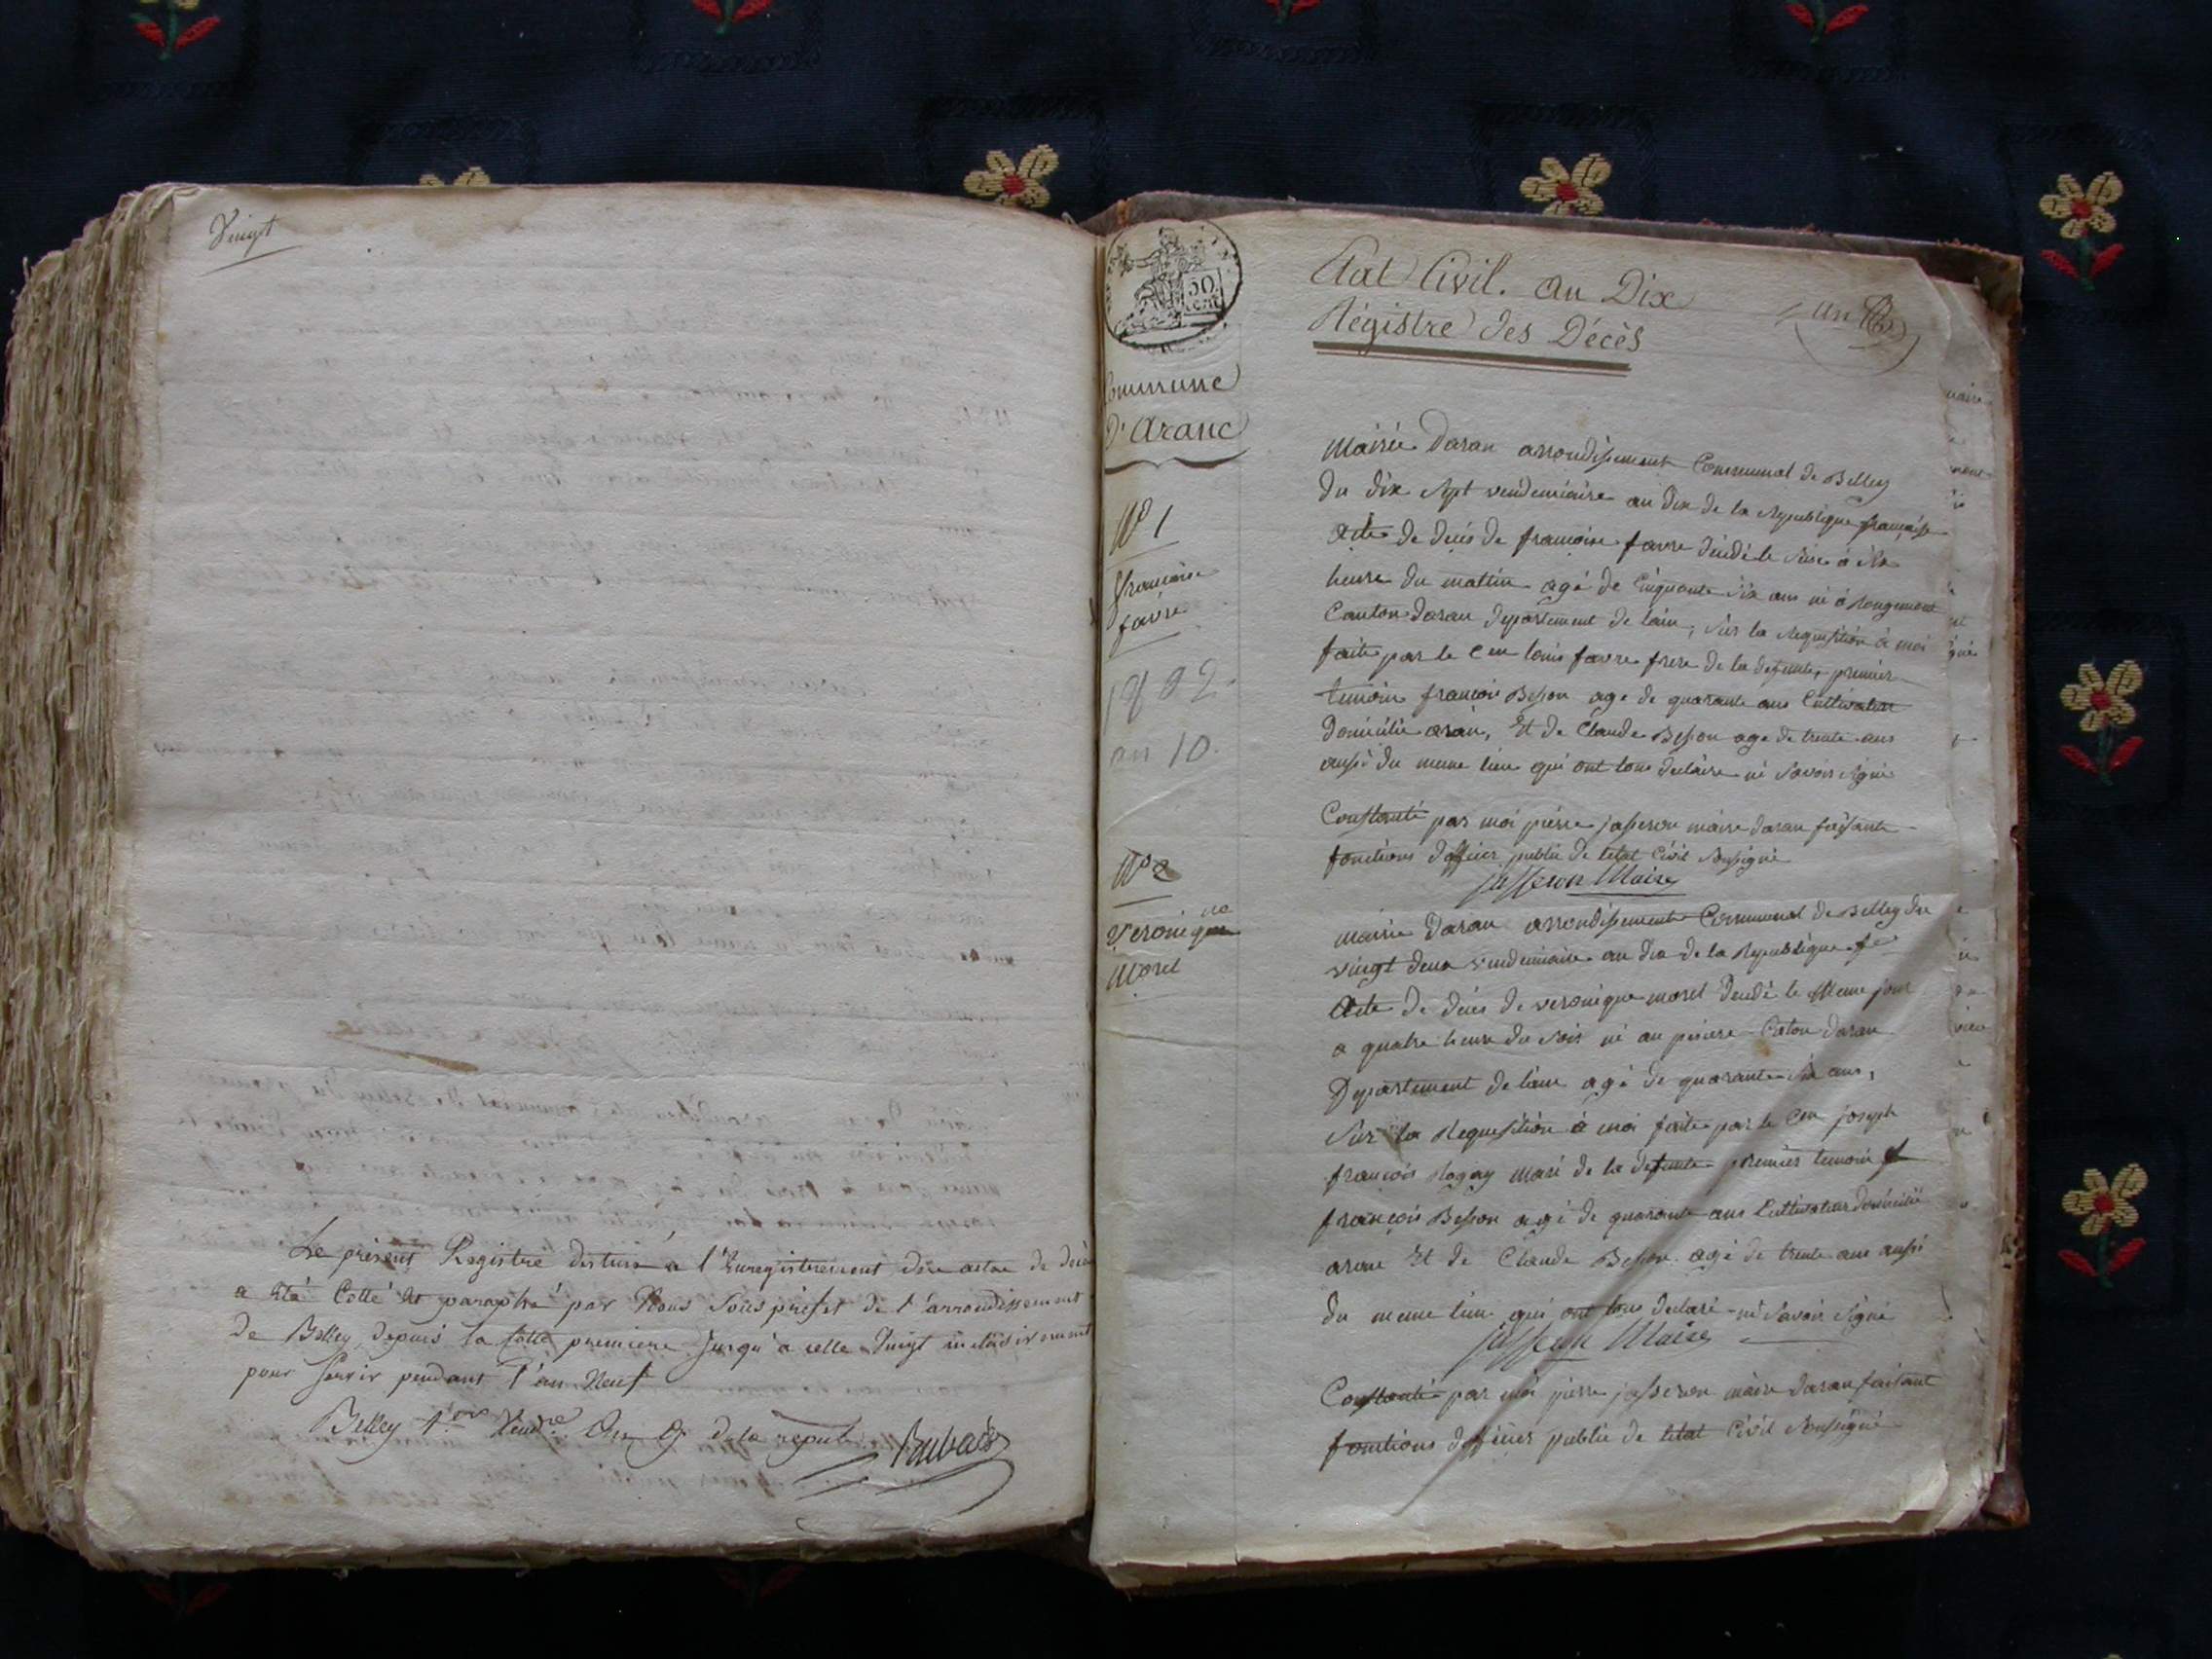 Vingt
Le présent Registre destiné a l'Enregistrement des actes de décès
a été Cotté et paraphé par Nous Sous préfet de l'arrondissement
de Belley, depuis la Cotte premiere jusqu'a celle Vingt inclusivement
pour servir pendant l'an Neuf
Belley 1.er Vend.re An 9 de la repub.
50
Commune
D'Aranc
N° 1
françoise
favre
1802.
an 10.
N° 2
Veronique
Morel
Etat Civil. An Dix
Régistre des Décès
un
Mairie Daran arrondissement Communal de Belley
du dix sept vendemiaire an dix de la Republique française
Acte de deces de francoise favre décédé le
heure du mattin agé de Cinquante six ans né à Rougemont
Canton daran departement de lain, sur la Requisition à moi
faite par le Cen louis favre frere de la defunte, premier
temoin francois Besson age de quarante ans Cultivateur
domicilie aran, Et de Claude Besson age de trente ans
aussi du meme lieu qui ont tous declaire ne savoir signé
Constaté par moi pierre jasseron maire daran faisante
fonctions dofficier public de letat Civil soussigné
jasseron Maire
Mairie Daran arrondissement Communal de Belley du
vingt deux vendemiaire an dix de la Republique f
Acte de deces de veronique morel decedé le Meme jour
a quatre heure du soir né au Caton daran
Departement de lain agé de quarante six ans,
Sur la Requisition à moi faite par le Cen joseph
francois mari de la defunte premier temoin
françois Besson agé de quarante ans Cultivateur domicilié
aran Et de Claude Besson agé de trente ans aussi
du meme lieu qui ont tous declaré ne savoir signé
jasseron Maire
Constaté par moi pierre jasseron maire daran faisant
fonctions dofficier public de letat Civil soussigné